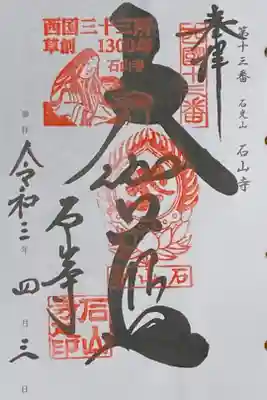 奉拝
第十三番 石光山 石山寺
西國十三番
西国三十三所
草創1300年
石山寺
大伽藍
石山寺
令和三年四月三日